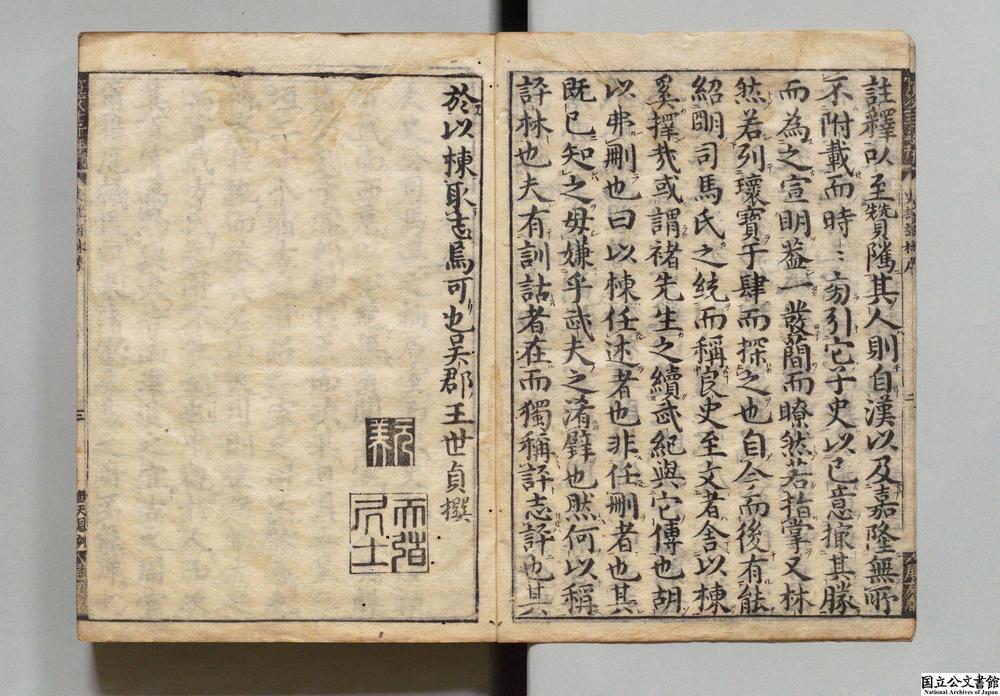 註釋以至贊隲其人則自漢以及嘉隆無所
不附載而時〻旁引它子史以己意撮其勝
而為之宣明葢一發蕳而瞭然若指掌又林
然若列瓌寶于肆而探之也自今而後有能
紹明司馬氏之統而稱良史至文者舍以棟
奚擇哉或謂禇先生之續武紀與它傳也胡
以弗刪也曰以棟任述者也非任刪者也其
既已知之毋嫌乎武夫之淆璧也然何以稱
評林也夫有訓詁者在而獨稱評志評也其
於以棟取志焉可也吳郡王世貞撰
元美
天弢居士
国立公文書館
National Archives of Japan